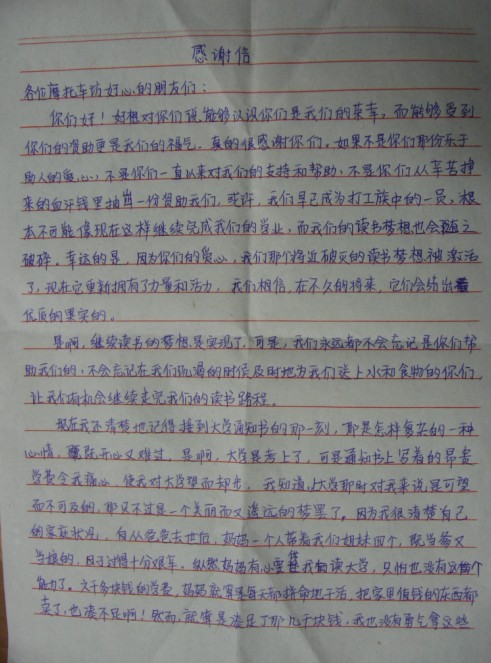 感谢信
各位摩托车坊好心的朋友们：
你们好！好想对你们说，能够认识你们是我们的荣幸，而能够受到
你们的赞助更是我们的福气。真的很感谢你们，如果不是你们那份乐于
助人的爱心，不是你们一直以来对我们的支持和帮助，不是你们从辛苦挣
来的血汗钱里抽出一份赞助我们，或许，我们早已成为打工族中的一员，根
本不可能像现在这样继续完成我们的学业，而我们的读书梦想也会随之
破碎。幸运的是，因为你们的爱心，我们那个将近破灭的读书梦想被激活
了，现在它重新拥有了力量和活力，我们相信，在不久的将来，它们会结出
优质的果实的。
是啊，继续读书的梦想是实现了，可是，我们永远都不会忘记是你们帮
助我们的，不会忘记在我们饥渴的时侯及时地为我们送上水和食物的你们，
让我们有机会继续走完我们的读书路程。
现在我不清楚地记得接到大学通知书的那一刻，那是怎样复杂的一种
心情，既开心又难过，是啊，大学是考上了，可是通知书上写着的昂贵
学费令我痛心，使我对大学望而却步，我知道，大学那时对我来说是可望
而不可及的，那只不过是一个美丽而又遥远的梦罢了。因为我很清楚自己
的家庭状况，自从爸爸去世后，妈妈一个人带着我们姐妹四个，既当爸又
当娘的，日子过得十分艰辛，纵然妈妈有心要我们读大学，只怕也没有这个
能力了。六千多块钱的学费，妈妈就算是每天都拼命地干活，把家里值钱的东西都
卖了，也凑不足啊！然而，就算是凑足了那几千块钱，我也没有勇气拿这些